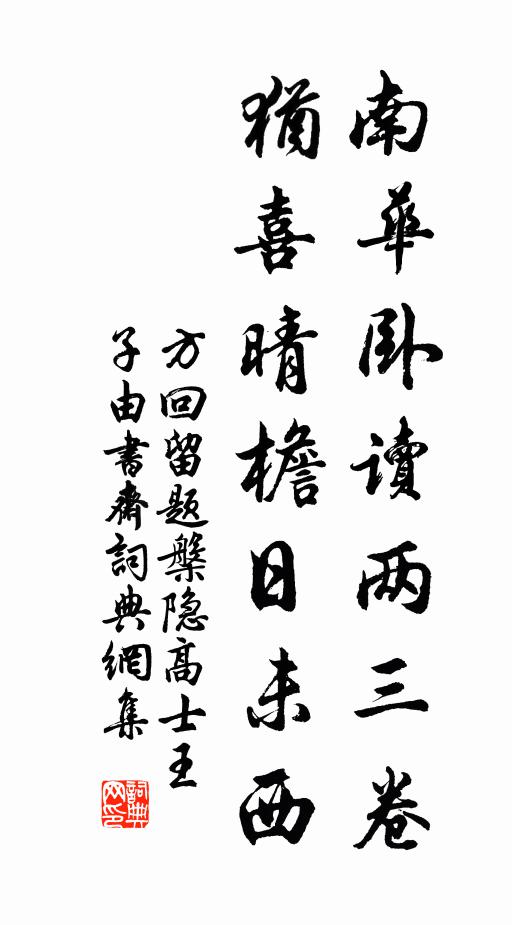 南華卧读两三卷
猶喜晴檐日未西
方回留题槃隐高士王
子由書齋詞典網集
詞典
网印